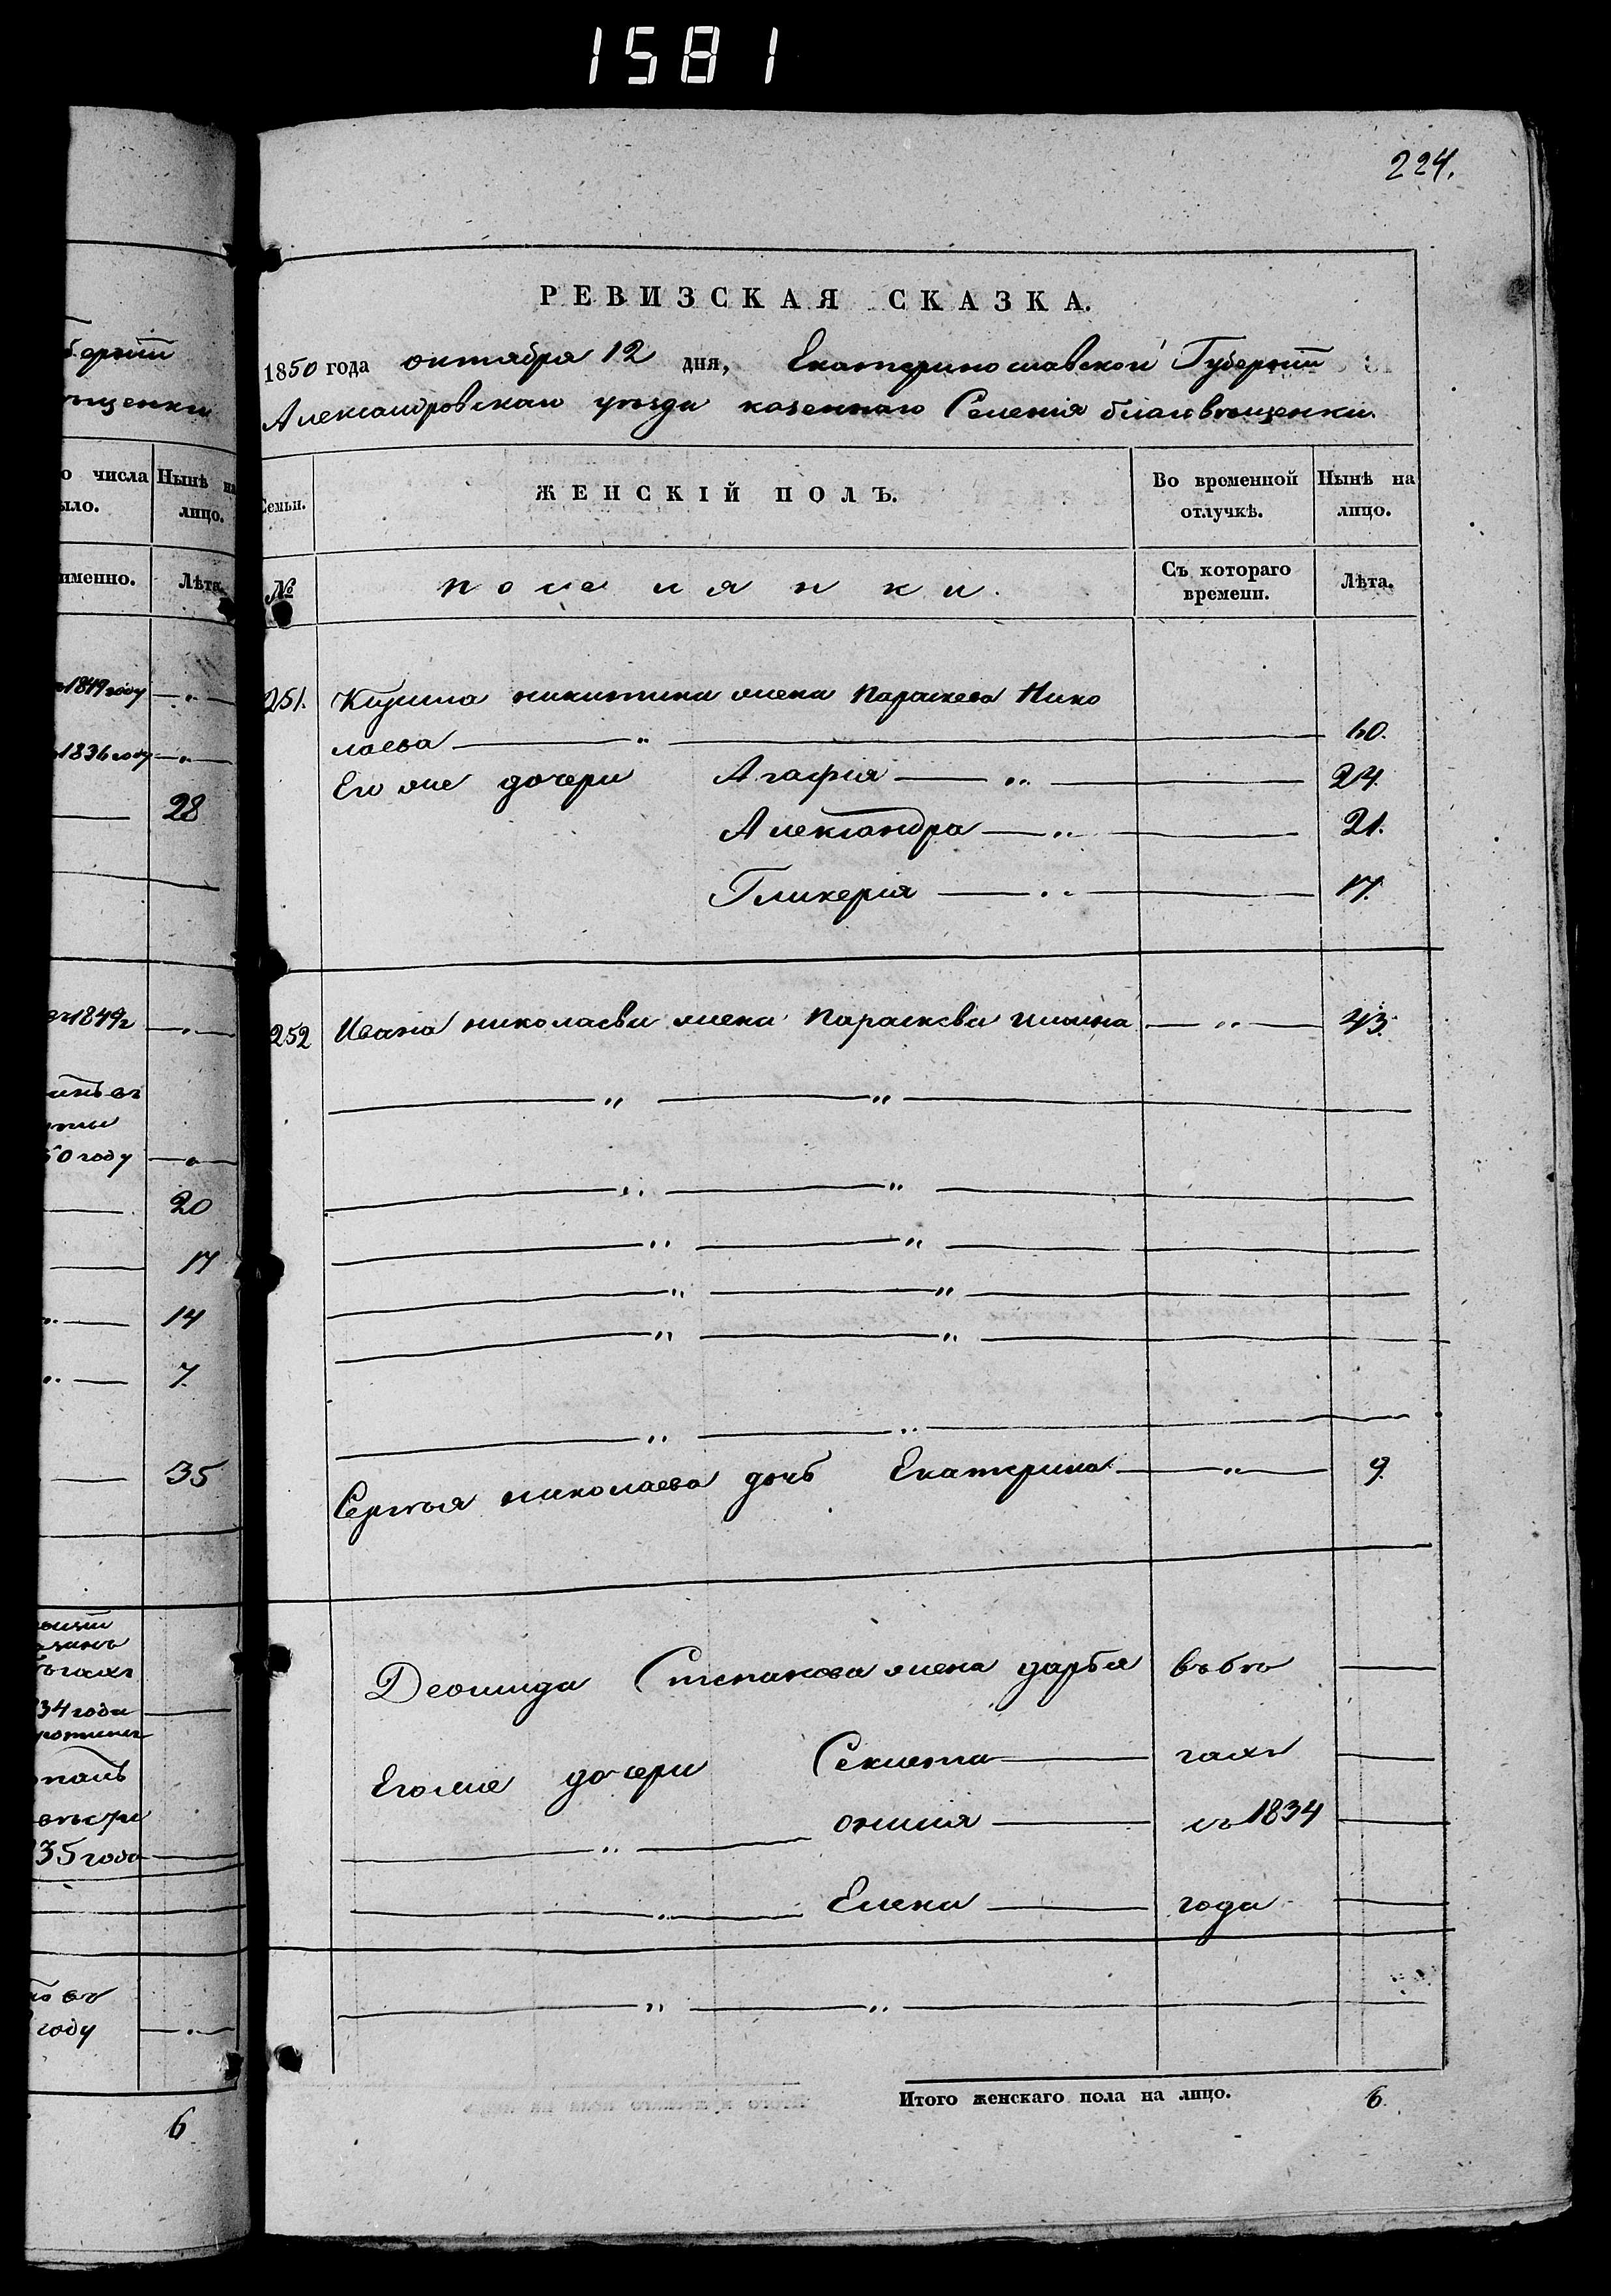 1581
224.
РЕВИЗСКАЯ СКАЗКА.
1850 года октября 12 дня, Екатеринославской Губерніи
Александровскаго уѣзда казеннаго Селенія благовѣщенки.
Семьи.
ЖЕНСКІЙ ПОЛЪ.
Во временной отлучкѣ.
Нынѣ на лицо.
№
поселянки.
Съ котораго времени.
Лѣта.
251. Кузьма никитина жена Параскева Нико
лаева — " — 60.
Его же дочери Агафія — " — 24.
Александра — " — 21.
Гликерія — " — 17.
252 Ивана николаева жена Параскева ильина — " — 43.
— " — " —
— " — " —
— " — " —
— " — " —
— " — " —
— " — " —
Сергѣя николаева дочь Екатерина — " — 9.
Степанова жена дарья въ бѣ —
Его же дочери — гахъ —
— " — — съ 1834 —
— " — Елена — года —
— " — " —
Итого женскаго пола на лицо. 6.
числа
Нынѣ на
ыло.
лицо.
именно.
Лѣта.
1849 году — " —
1836 году — " —
— 28
1849г — " —
50 году — " —
— 20
— 17
— 14
— 7.
— 35
34 года —
35 года —
году — " —
6